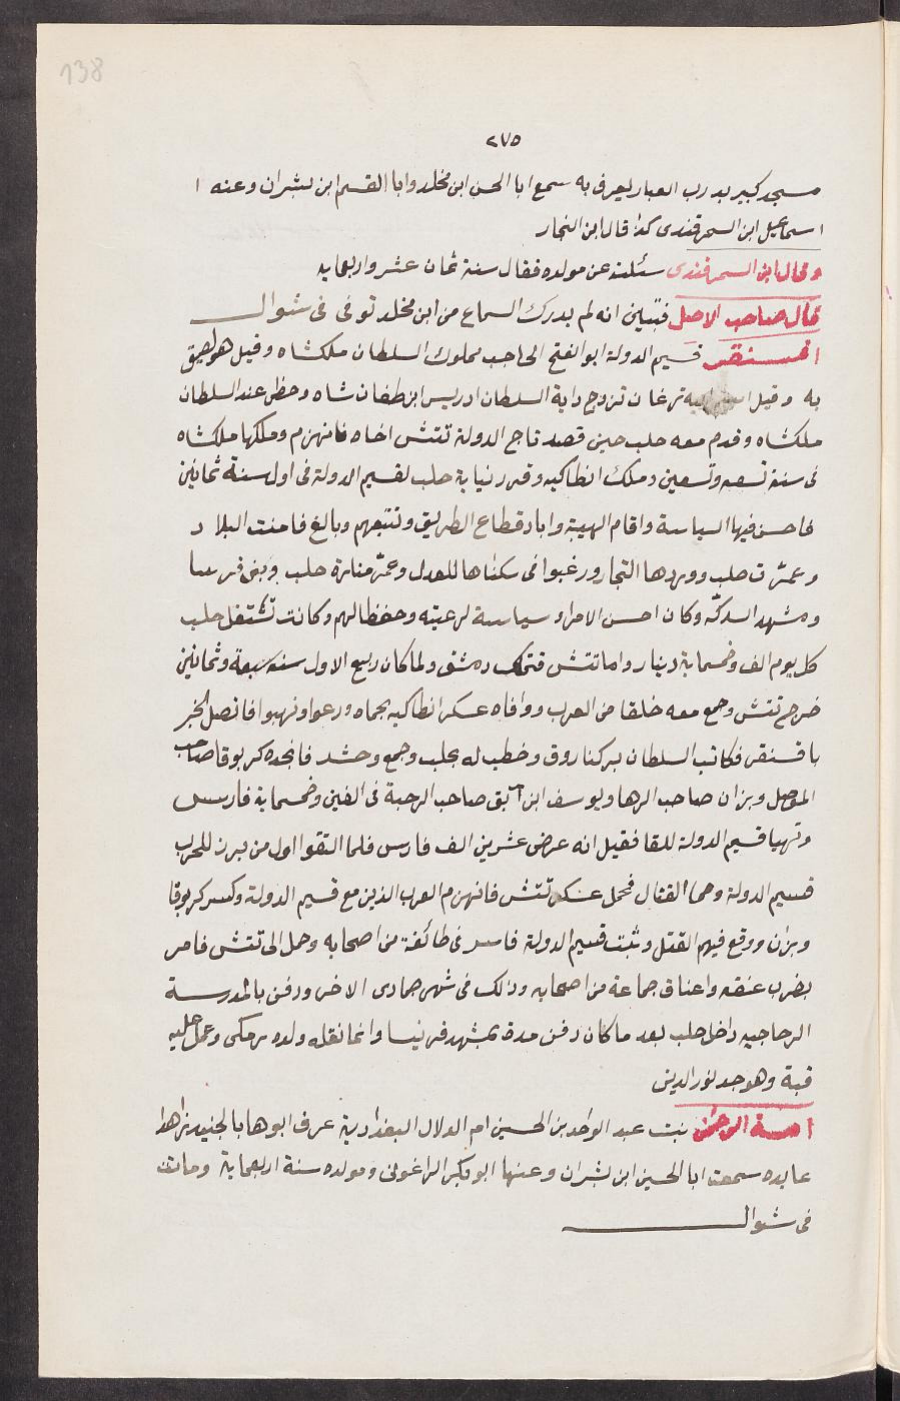 138
٢٧٥
مسجد كبير بدرب العبار يعرف به سمع ابا الحسن ابن مخلد وابا القسم ابن بشران وعنه ا
اسماعيل ابن السمرقندى كذا قال ابن النجار
وقال ابن السمرقندى سئلته عن مولده فقال سنة ثمان عشر واربعمايه
قال صاحب الاصل فتبين انه لم يدرك السماع من ابن مخلد توفى فى شوال
اقسنقر قسيم الدولة ابو الفتح الحاجب مملوك السلطان ملكشاه وقيل هو لصيق
به وقيل اسم ابيه ترغان تزوج داية السلطان ادريس ابن طغان شاه وحظى عند السلطان
ملكشاه وقدم معه حلب حين قصد تاج الدولة تتش اخاه فانهزم وملكها ملكشاه
فى سنة تسعه وتسعين وملك انطاكيه وقرر نيابة حلب لقسيم الدولة فى اول سنة ثمانين
فاحسن فيها السياسة واقام الهيبة واباد قطاع الطريق وتتبعهم وبالغ فامنت البلاد
وعمرت حلب ووردها التجار ورغبوا فى سكناها للعدل وعمّر منارة حلب وبنى قرنبيا
ومشهد الدكّه وكان احسن الامرا سياسة لرعيته وحفظا لهم وكانت تشتغل حلب
كل يوم الف وخمسماية دينار واما تتش فتملك دمشق ولما كان ربيع الاول سنة سبعة وثمانين
خرج تتش وجمع معه خلقا من العرب ووافاه عسكر انطاكيه بحماه ورعوا ونهبوا فاتصل الخبر
باقسنقر فكاتب السلطان بركناروق وخطب له بحلب وجمع وحشد فانجده كربوقا صاحب
الموصل وبزان صاحب الرها ويوسف ابن آبق صاحب الرحبة فى الفين وخمسماية فارس
وتهيا قسيم الدولة للقا فقيل انه عرض عشرين الف فارس فلما التقوا اول من برز للحرب
قسيم الدولة وحما القتال فحمل عسكر تتش فانهزم العرب الذين مع قسيم الدولة وكسر كربوقا
وبزان ووقع فيهم القتل وثبت قسيم الدولة فاسر فى طائفة من اصحابه وحمل الى تتش فامر
بضرب عنقه واعناق جماعة من اصحابه وذلك فى شهر جمادى الاخر ودفن بالمدرسة
الزجاجيه داخل حلب بعد ما كان دفن مدة بمشهد قرنبيا وانما نقله ولده زنكى وعمل عليه
قبة وهو جد نور الدين
امة الرحمن بنت عبد الواحد بن الحسين ام الدلال البغدادية عرف ابوها بالجنيد زاهدا
عابده سمعت ابا الحسين ابن بشران وعنها ابو بكر الزاغونى ومولده سنة اربعماية وماتت
فى شوال